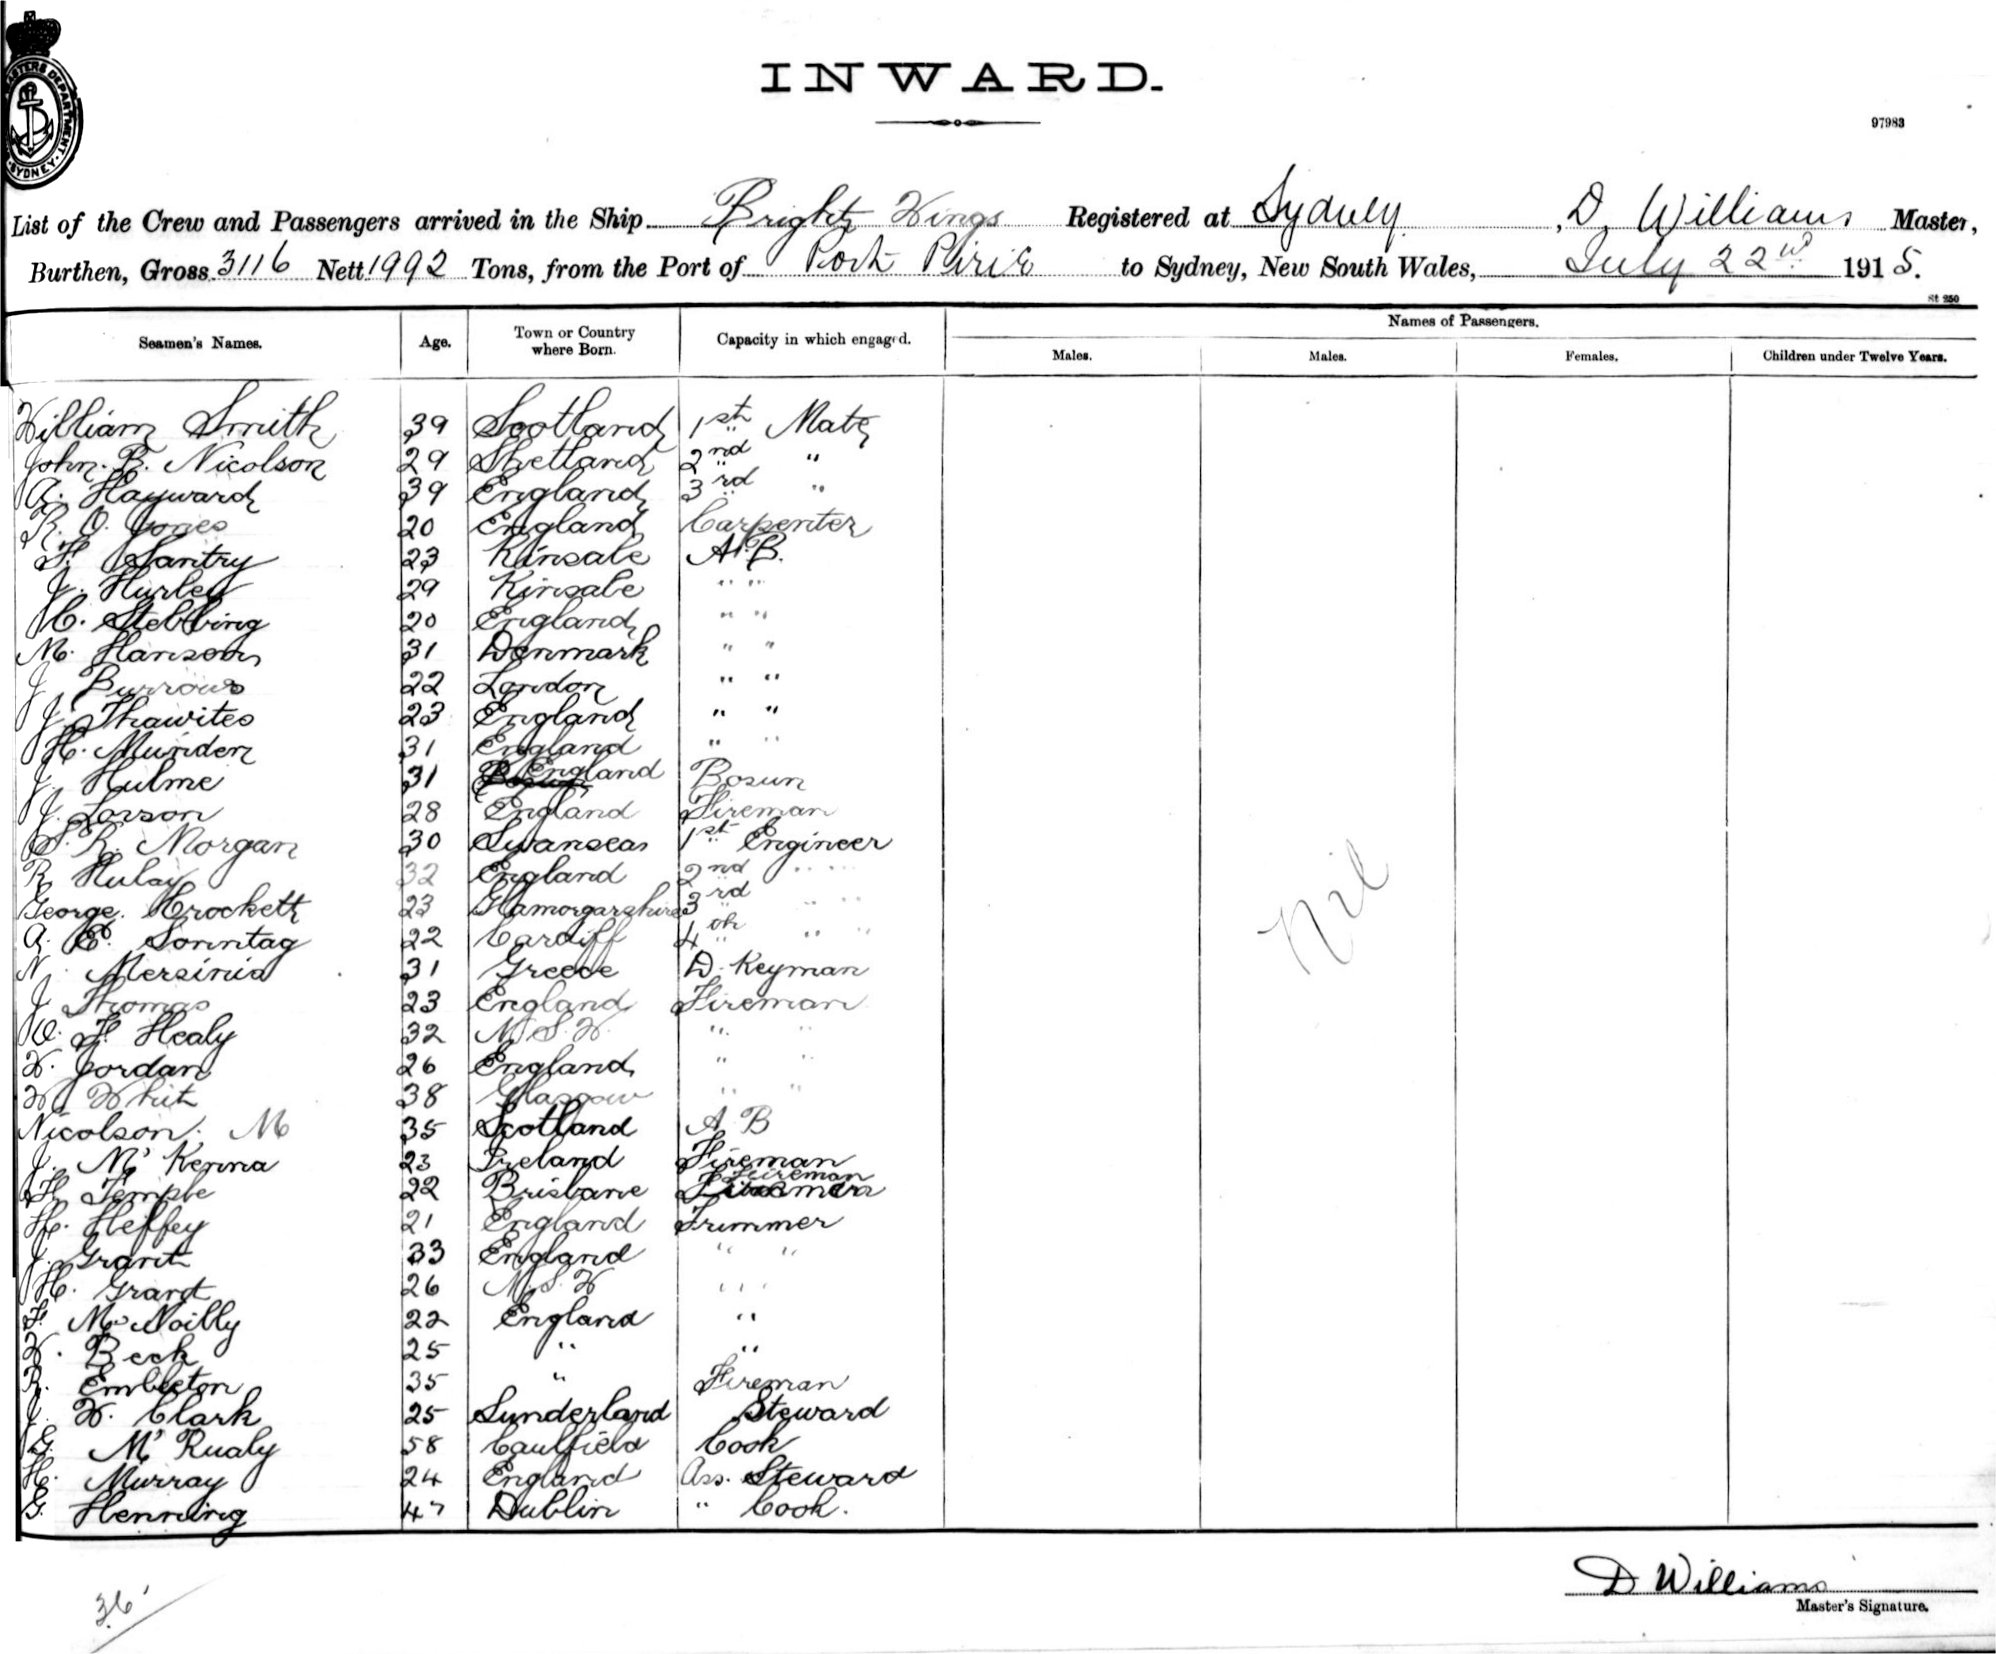 MASTERS DEPARTMENT SYDNEY
INWARD.
97983
List of the Crew and Passengers arrived in the Ship Bright Wings Registered at Sydney, D Williams Master,
Burthen, Gross 3116 Nett 1992 Tons, from the Port of Port Pirie to Sydney, New South Wales, July 22nd 1915.
St 250
Seamen's Names. Age. Town or Country where Born. Capacity in which engaged. Names of Passengers.
Males. Males. Females. Children under Twelve Years.
William Smith 39 Scotland 1st Mate
John. B. Nicolson 29 Shetland 2nd "
A. Hayward 39 England 3rd "
R. O. Jones 20 England Carpenter
F. Santry 23 Kinsale A.B.
J. Hurley 29 Kinsale " "
C. Stebbing 20 England " "
M. Hanson 31 Denmark " "
J Burrows 22 London " "
J. Thawites 23 England " "
H. Munden 31 England " "
J. Hulme 31 England Bosun
J. Larson 28 England Fireman
S. R. Morgan 30 Swansea 1st Engineer
R Hulay 32 England 2nd " "
George. Crockett 23 Glamorganshire 3rd " "
A. E. Sonntag 22 Cardiff 4th " "
N. Mersinia 31 Greece D. Keyman
J Thomas 23 England Fireman
W. F. Healy 32 N.S.W. " "
W. Jordan 26 England " "
W White 38 Glasgow " "
Nicolson. M 35 Scotland A B
J. McKenna 23 Ireland Fireman
H Temple 22 Brisbane Fireman
H. Heffey 21 England Trimmer
J. Grant 33 England " "
H. Grant 26 N.S.W " "
F. McNoilly 22 England "
W. Beck 25 " "
R. Embleton 35 " Fireman
J. W. Clark 25 Sunderland Steward
G. McRualy 58 Caulfield Cook
H. Murray 24 England Ass. Steward
G. Henning 47 Dublin " Cook.
Nil
D Williams
Master's Signature.
36